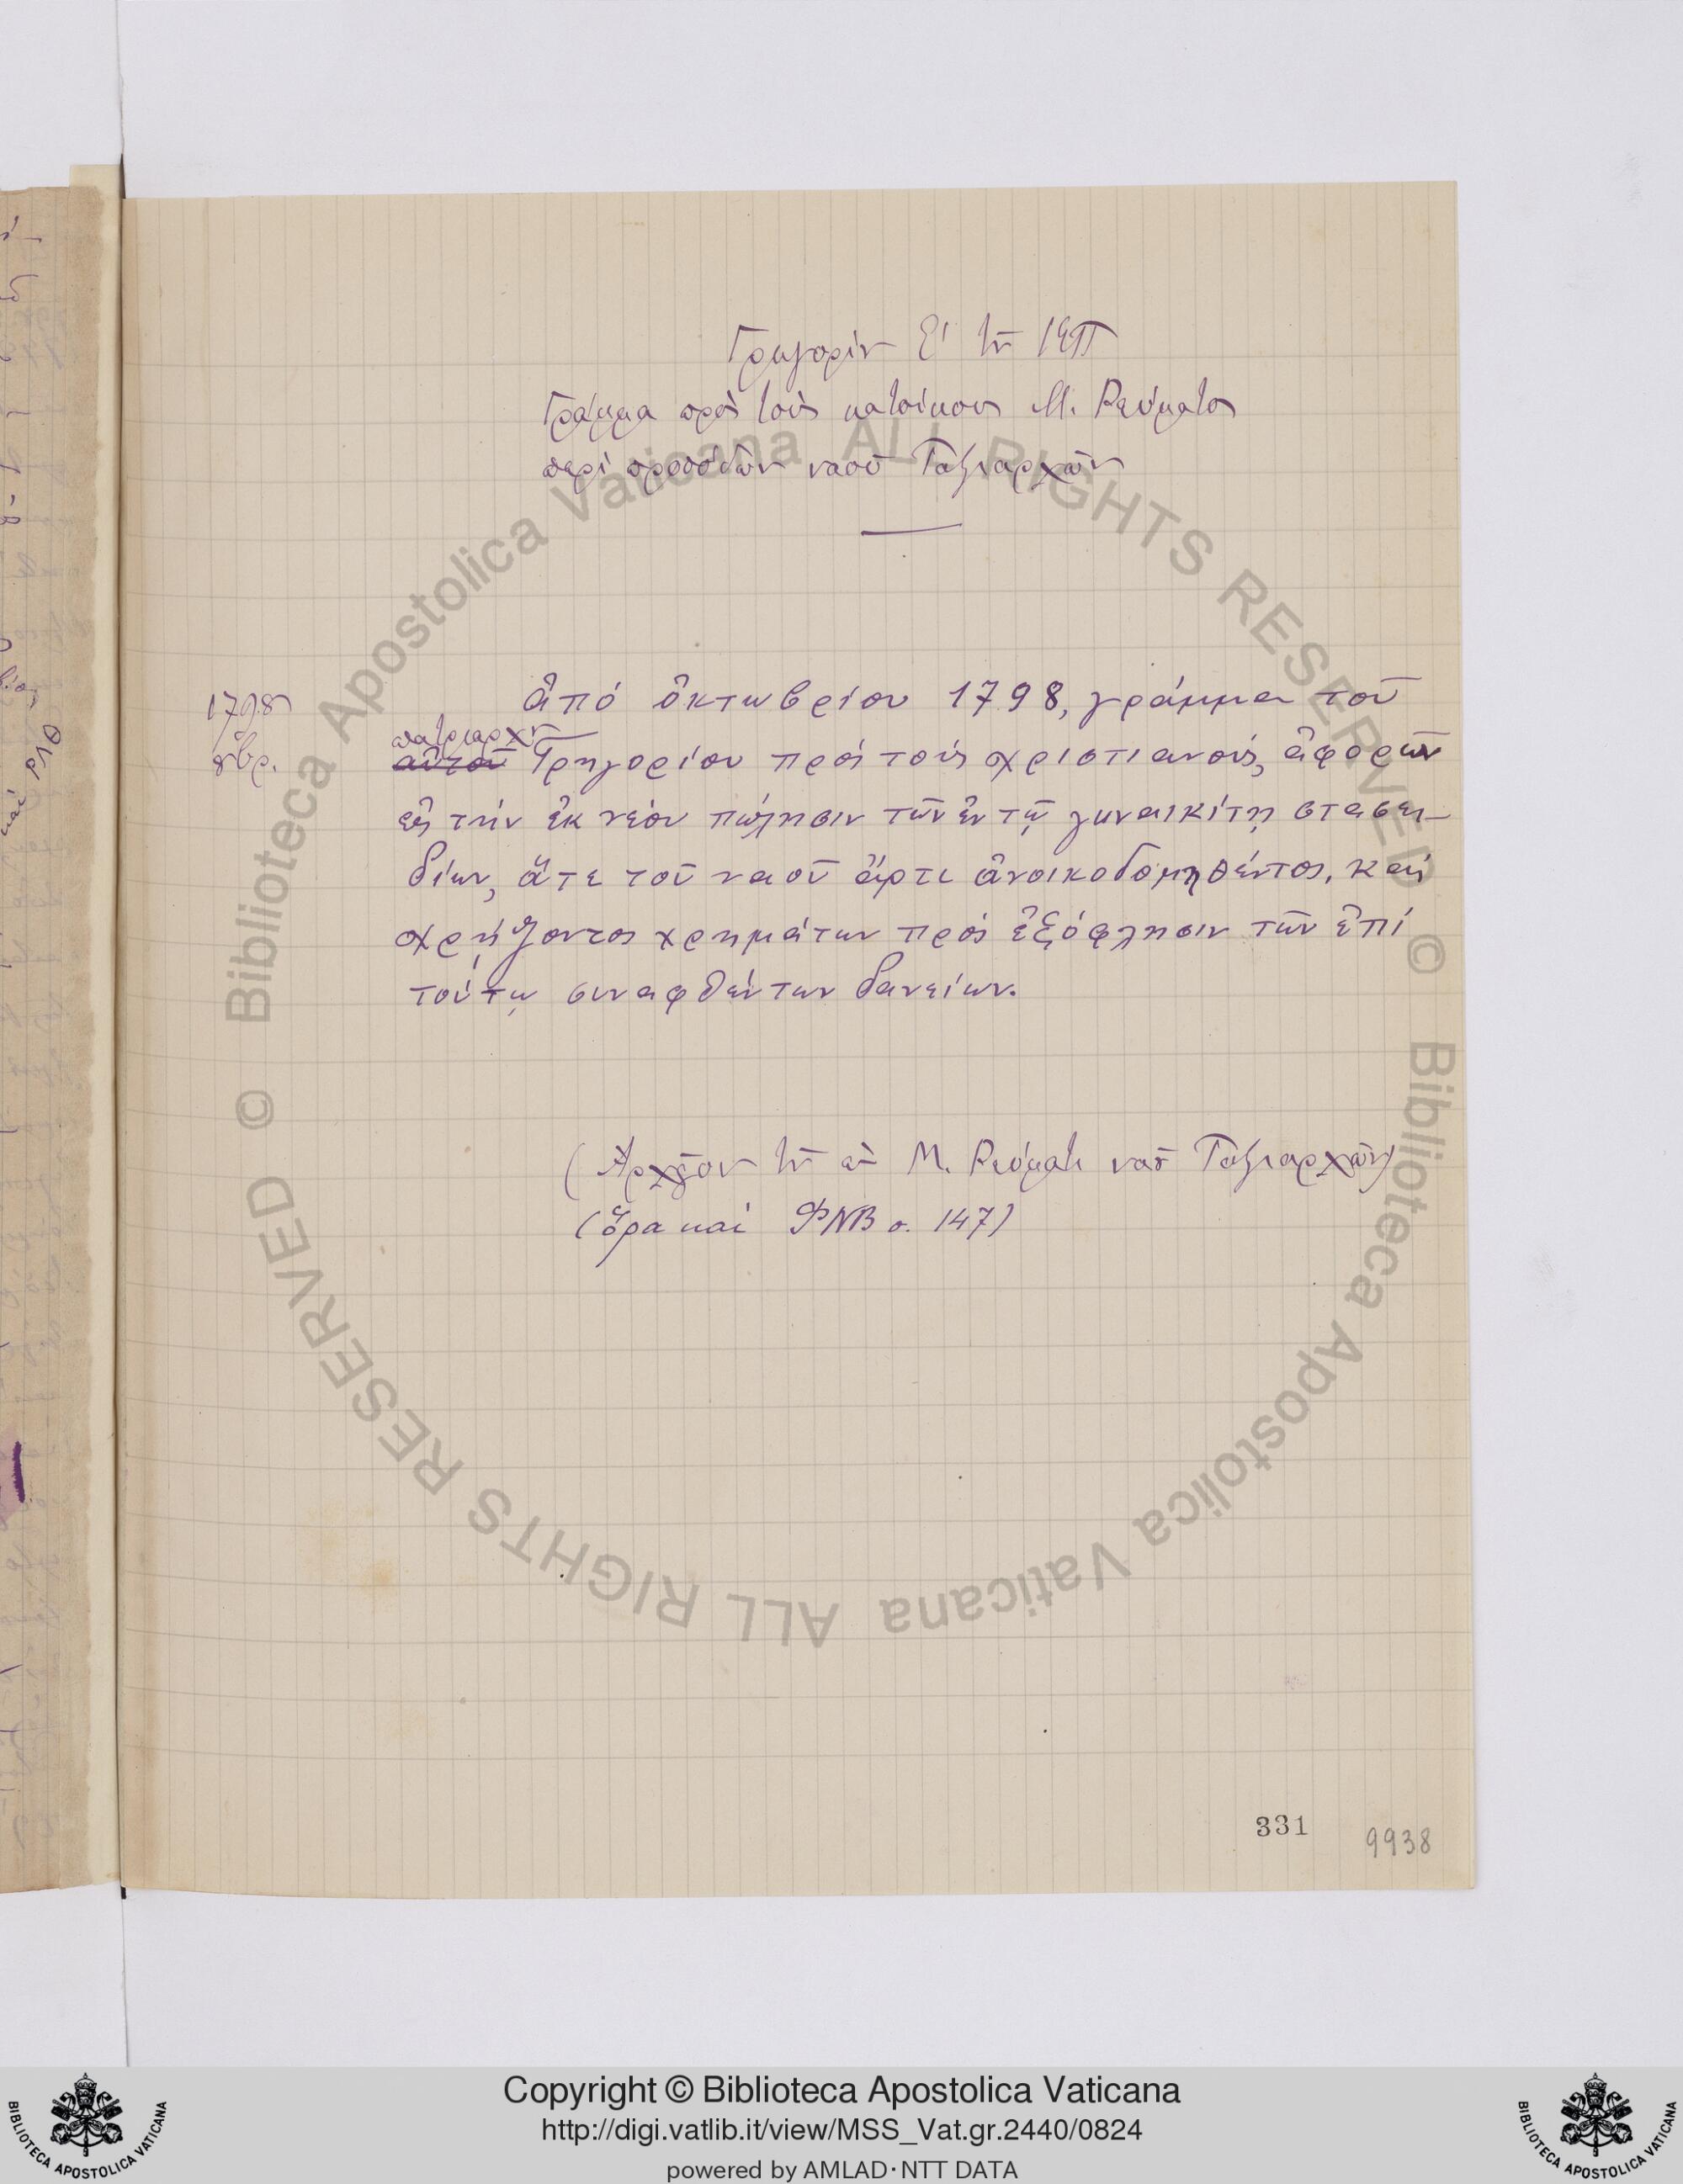 Γρηγορίου Ε′ τοῦ ΚΠ
Γράμμα πρὸς τοὺς κατοίκους Μ. Ρεύματος
περὶ προσόδων ναοῦ Ταξιαρχῶν
1798
8βρ.
ἀπό ὀκτωβρίου 1798, γράμμα τοῦ
πατριάρχου
αὐτοῦ Γρηγορίου πρός τούς χριστιανούς, ἀφορῶν
εἰς τήν ἐκ νέου πώλησιν τῶν ἐν τῷ γυναικίτῃ στασει-
δίων, ἅτε τοῦ ναοῦ ἄρτι ἀνοικοδομηθέντος, καί
χρῄζοντος χρημάτων πρός ἐξόφλησιν τῶν ἐπί
τούτῳ συναφθέντων δανείων.
(Ἀρχεῖον τοῦ ἐν Μ. Ρεύματι ναοῦ Ταξιαρχῶν)
(ὅρα καὶ ΦΝΒ σ. 147)
331
9938
Copyright © Biblioteca Apostolica Vaticana
http://digi.vatlib.it/view/MSS_Vat.gr.2440/0824
powered by AMLAD·NTT DATA
BIBLIOTECA APOSTOLICA VATICANA
BIBLIOTECA APOSTOLICA VATICANA
© Biblioteca Apostolica Vaticana ALL RIGHTS RESERVED
© Biblioteca Apostolica Vaticana ALL RIGHTS RESERVED